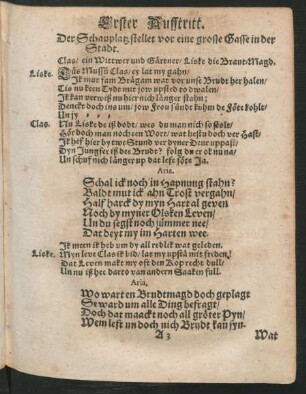 Erster Aufftritt.
Der Schauplatz stellet vor eine grosse Gasse in der
Stadt.
Clas/ ein Wittwer und Gärtner/ Liske die Braut-Magd.
Liske. Clas/ ey lat my gahn/
Ik mut fam Brägam wat vor unse Brudt her halen/
Tis nu keen Tyde mit jow upsted to dwalen/
Ik kan verwiß nu hier nich länger stahn;
Denckt doch no um/ jow Frou sünd kuhm de Föte kohlt/
Un jy
Clas. Nu Liske de is dodt/ wes du man nich so stolt/
Hör doch man noch een Wort/ wat hestu doch ver Hast/
Ik hef hier by twe Stund ver dyner Deur uppast/
Dyn Jungfer is de Brudt? folg du er ok nu na/
Un schuf nich länger up dat lefe söte Ja.
Aria.
Schal ick noch in Hapnung stahn?
Baldt mut ick ahn Trost vergahn/
Half harck dy myn Hart al geven
Noch by myner Olsken Leven/
Un du segst noch jümmer nee/
Dat deyt my im Harten wee.
Ik meen ik heb um dy all redlick wat geleden.
Liske. Myn leve Clas ik bid/ lat my upstä mit freden/
Dat Leven makt my oft den Kop recht dull/
Un nu is her darto van andern Saaken full.
Aria.
Wo wart en Brudtmagd doch geplagt
Se ward um alle Ding befragt/
Doch dat maackt noch all gröter Pyn/
Wem lest un doch nich Brudt kan syn.
A 3 Wat